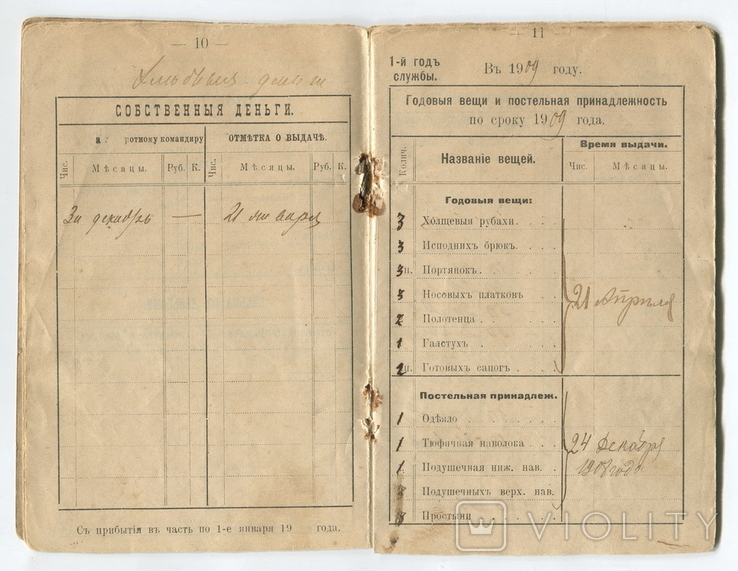 — 10 —
СОБСТВЕННЫЯ ДЕНЬГИ.
ротному командиру
ОТМѢТКА О ВЫДАЧѢ.
Чис.
Мѣсяцы.
Руб.
К.
Чис.
Мѣсяцы.
Руб.
К.
За декабрь —
21 января
Съ прибытія въ часть по 1-е января 19 года.
— 11 —
1-й годъ
службы.
Въ 1909 году.
Годовыя вещи и постельная принадлежность
по сроку 1909 года.
Колич.
Названіе вещей.
Время выдачи.
Чис.
Мѣсяцы.
Годовыя вещи:
3 Холщевыя рубахи
3 Исподнихъ брюкъ
3 п. Портянокъ
3 Носовыхъ платковъ
21 Апрѣля
2 Полотенца
1 Галстухъ
2 п. Готовыхъ сапогъ
Постельная принадлеж.
1 Одѣяло
1 Тюфячная наволока
24 Декабря
1908 года
1 Подушечная ниж. нав.
Подушечныхъ верх. нав.
Простыни
VIOLITY